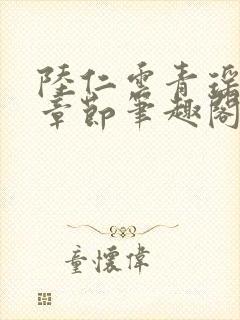 陸仁雲青瑤
章節筆趣閣
童懷偉